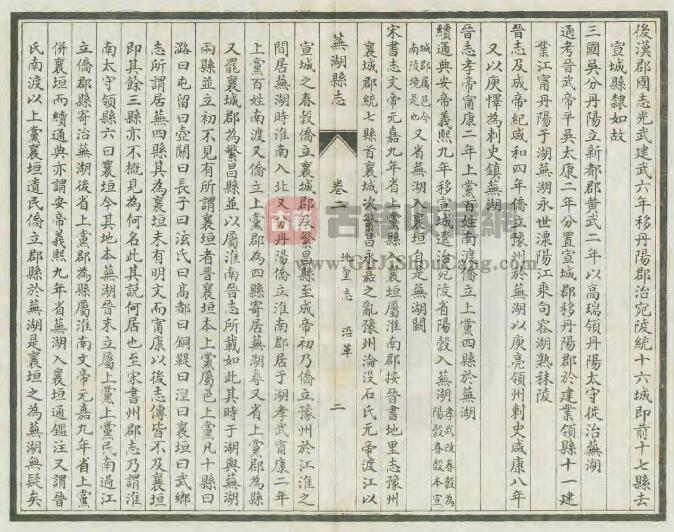 後漢郡國志光武建武六年移丹陽郡治宛陵統十六城即前十七縣去
宣城縣隸如故
三國吳分丹陽立新都郡黄武二年以高瑞領丹陽太守徙治蕪湖
通考晉武帝平吳太康二年分置宣城郡移丹陽郡於建業領縣十一建
業江甯丹陽于湖蕪湖永世溧陽江乘句容湖熟秣陵
晉志及成帝紀咸和四年僑立豫州於蕪湖以庾亮領州刺史咸康八年
又以庾懌為刺史鎮蕪湖
晉志孝帝甯康二年上黨百姓南渡僑立上黨四縣於蕪湖
續通典安帝義熙九年移宣城還治宛陵省陽穀入蕪湖
孝武改春穀為
陽穀春穀本宣
城郡屬邑今
南陵境是也
又省蕪湖入襄垣自是無湖闕
宋書志文帝元嘉九年省上黨縣入襄垣屬淮南郡按晉書地里志豫州
襄城郡統七縣首襄城次繁昌永嘉之亂豫州淪没石氏元帝渡江以
蕪湖縣志
卷二
地里志 沿革
二
宣城之春穀僑立襄城郡及繁昌縣至成帝初乃僑立豫州於江淮之
間居蕪湖時淮南入北又分丹陽僑立淮南郡居于湖孝武甯康二年
上黨百姓南渡又僑立上黨郡為四縣寄居蕪湖尋又省上黨郡為縣
又罷襄城郡為繁昌縣並以屬淮南晉志所載如此其時于湖與蕪湖
兩縣並立初不見有所謂襄垣者晉襄垣本上黨屬邑上黨凡十縣曰
潞曰屯留曰壺關曰長子曰泫氏曰高都曰銅鞮曰湼曰襄垣曰武鄉
志所謂居蕪四縣其為襄垣未有明文而甯康以後志傳皆不及襄垣
即其餘三縣亦不概見為何名此其說何居也至宋書州郡志乃謂淮
南太守領縣六曰襄垣今其地本蕪湖晉末立屬上黨上黨民南過江
立僑郡縣寄治蕪湖後省上黨郡為縣屬淮南文帝元嘉九年省上黨
併襄垣而續通典亦謂安帝義熙九年省蕪湖入襄垣通鑑注又謂晉
氏南渡以上黨襄垣遺民僑立郡縣於蕪湖是襄垣之為蕪湖無疑矣
古籍收藏網
www.GuJiShouCang.com